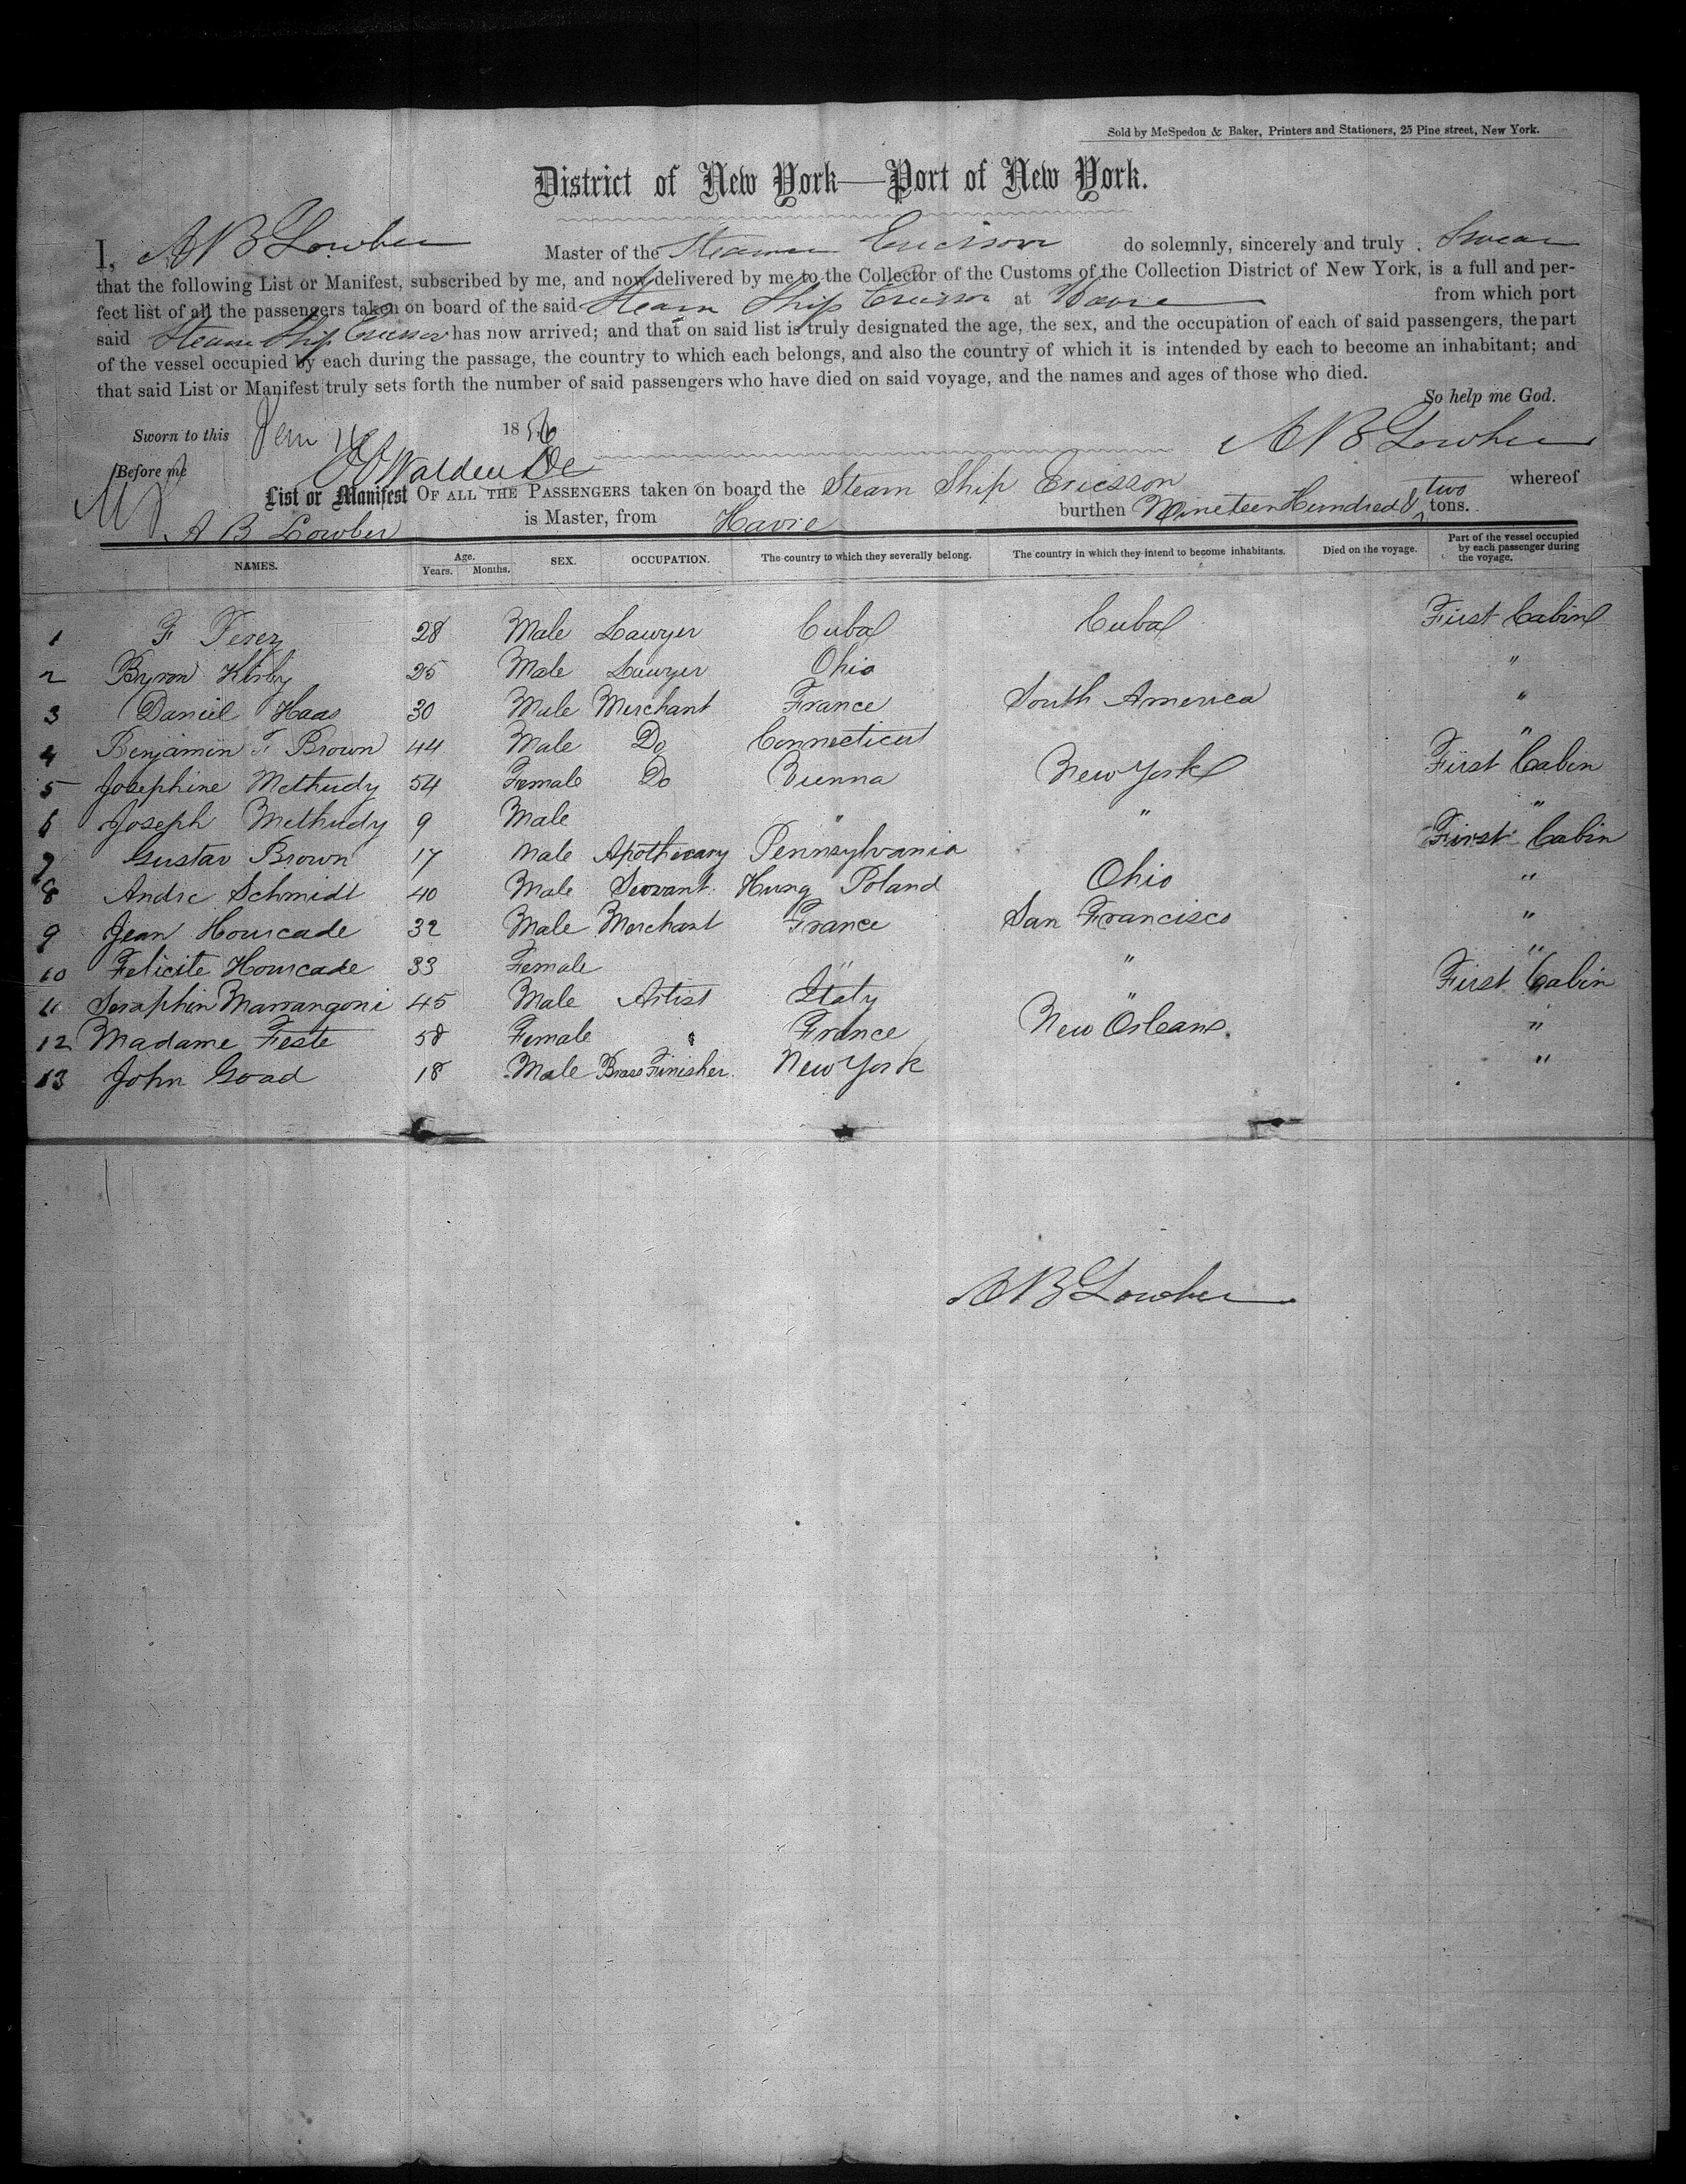 Sold by McSpedon & Baker, Printers and Stationers, 25 Pine street, New York.
District of New York—Port of New York.
I, A B Lowber Master of the Steamer Ericsson do solemnly, sincerely and truly Swear
that the following List or Manifest, subscribed by me, and now delivered by me to the Collector of the Customs of the Collection District of New York, is a full and per-
fect list of all the passengers taken on board of the said Steam Ship Ericsson at Havre from which port
said Steam Ship Ericsson has now arrived; and that on said list is truly designated the age, the sex, and the occupation of each of said passengers, the part
of the vessel occupied by each during the passage, the country to which each belongs, and also the country of which it is intended by each to become an inhabitant; and
that said List or Manifest truly sets forth the number of said passengers who have died on said voyage, and the names and ages of those who died.
So help me God.
Sworn to this 1856 A B Lowber
Before me
List or Manifest OF ALL THE PASSENGERS taken on board the Steam Ship Ericsson whereof
A B Lowber is Master, from Havre burthen Nineteen Hundred & two tons.
NAMES. Age. Years. Months. SEX. OCCUPATION. The country to which they severally belong. The country in which they intend to become inhabitants. Died on the voyage. Part of the vessel occupied by each passenger during the voyage.
1 F 28 Male Lawyer Cuba Cuba First Cabin
2 Byron Kirby 25 Male Lawyer Ohio "
3 Daniel Haas 30 Male Merchant France South America "
4 Benjamin F Brown 44 Male Do Connecticut "
5 Josephine Methudy 54 Female Do Vienna New York First Cabin
6 Joseph Methudy 9 Male " " "
7 Gustav Brown 17 Male Apothecary Pennsylvania First Cabin
8 Andre Schmidt 40 Male Servant Hung Poland Ohio "
9 Jean Hourcade 32 Male Merchant France San Francisco "
10 Felicite Hourcade 33 Female " " "
11 Seraphin Marrangoni 45 Male Artist Italy " First Cabin
12 Madame Feste 58 Female France New Orleans "
13 John Goad 18 Male Brass Finisher New York "
A B Lowber